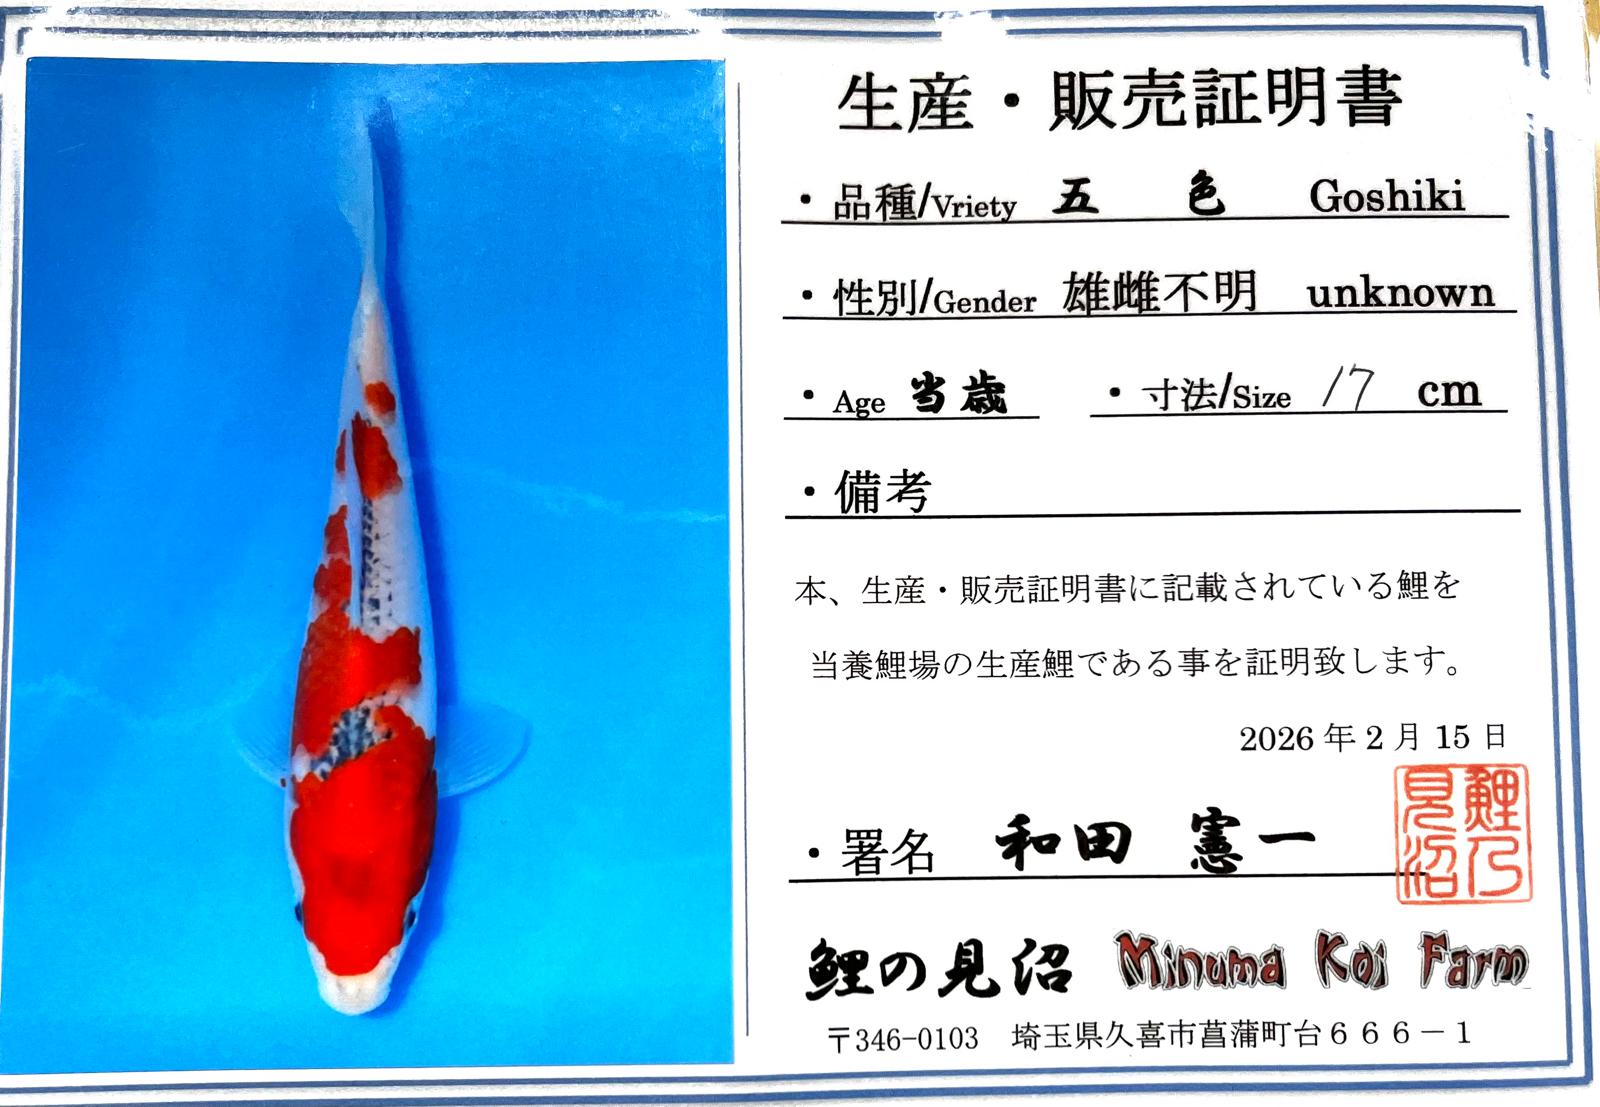 生産・販売証明書
・品種/Vriety 五 色 Goshiki
・性別/Gender 雄雌不明 unknown
・Age 当歳 ・寸法/Size 17 cm
・備考
本、生産・販売証明書に記載されている鯉を
当養鯉場の生産鯉である事を証明致します。
2026年2月15日
・署名 和田 憲一
鯉乃見沼
鯉の見沼 Minuma Koi Farm
〒346-0103 埼玉県久喜市菖蒲町台666-1